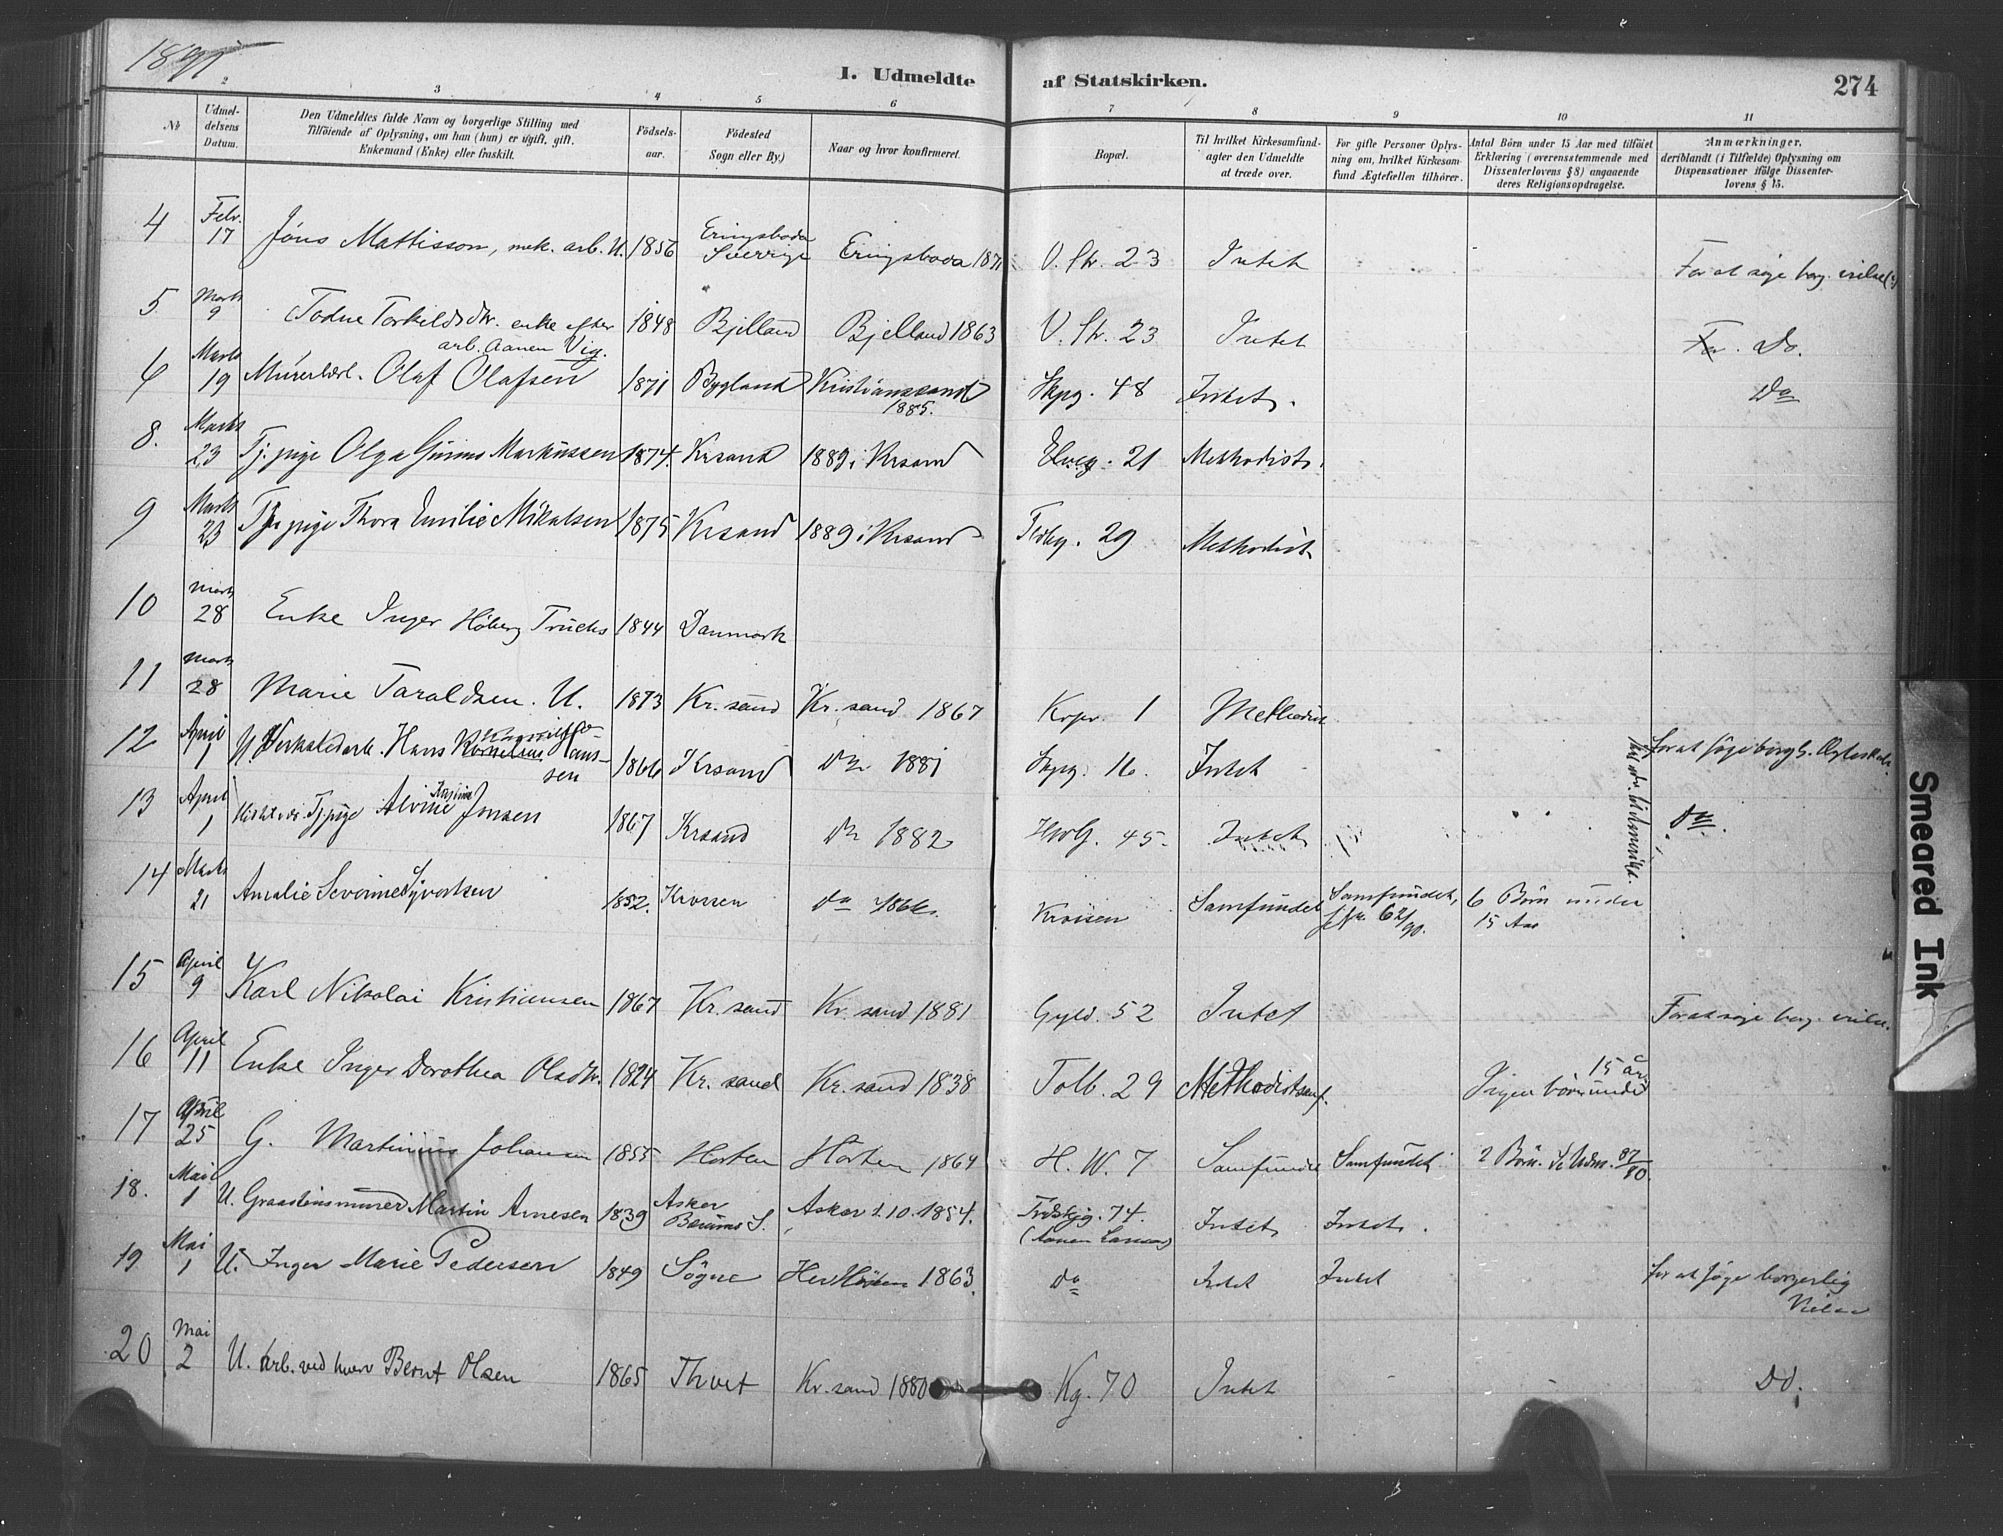 1891
I. Udmeldte af Statskirken. 274
2 3 4 5 6 7 8 9 10 11
Nr
Udmel-
delsens
Datum.
Den Udmeldtes fulde Navn og borgerlige Stilling med
Tilføiende af Oplysning, om han (hun) er ugift, gift,
Enkemand (Enke) eller fraskilt.
Fødsels-
aar.
Fødested
Sogn eller By.)
Naar og hvor konfirmeret.
Bopæl.
Til hvilket Kirkesamfund
agter den Udmeldte
at træde over.
For gifte Personer Oplys-
ning om, hvilket Kirkesam-
fund Ægtefællen tilhører.
Antal Børn under 15 Aar med tilføiet
Erklæring (overensstemmende med
Dissenterlovens § 8) angaaende
deres Religionsopdragelse.
Anmærkninger,
deriblandt (i Tilfælde) Oplysning om
Dispensationer ifølge Dissenter-
lovens § 15.
4 Febr. 17 Jöns Mattisson, mek. arb. U. 1856 Eringsboda Sverrige Eringsboda 1871 V. Str. 23 Intet For at søge borg. vielse
5 Marts 9 Todne Torkildsdtr. enke efter arb. Aanen Vig. 1848 Bjelland Bjelland 1863 V. Str. 23 Intet Do.
6 Marts 19 Murerlærl. Olaf Olafsen 1871 Bygland Kristianssand 1885. Skpg. 48 Intet. Do
8. Marts 23 Tj.pige Olga Markussen 1874. Krsand 1889 i Krsand Elveg. 21 Methodist.
9 Marts 23 Tj.pige Thora Emilie Mikalsen 1875 Krsand 1889 i Krsand 29 Methodist
10 Marts 28 Enke Inger Høberg Truels 1844 Danmark
11 Marts 28 Marie Taraldsen. U. 1873 Kr.sand Kr.sand 1867 1 Methodist
12 April 1 Verkstedarb. Hans Hans-
sen 1866 Krsand Do 1881 Skpg. 16. Intet for at søge borgl. Ægteskab.
13 April 1 Tj.pige Alvine Jonsen 1867 Krsand Do 1882 Holbg. 45 Intet Do.
14 Marts 21 Amalie Severine Syvertsen 1852. Krossen Do 1866. Krossen Samfundet Samfundet, 62/90. 6 Børn under
15 Aar
15 April 9 Karl Nikolai Kristiansen 1867 Kr.sand Kr.sand 1881 Gyld. 52 Intet For at søge borg. vielse.
16 April 11 Enke Inger Dorothea Olsdtr. 1824 Kr.sand Kr.sand 1838 Tolb. 29 Methodistsamf. Ingen børn under 15 år
17 April 25 G. Martinius Johansen 1855 Horten Horten 1864 H. W. 7 Samfundet Samfundet 2 Børn.
18. Mai 1 U. Graastensmurer Martin Arnesen 1839 Asker Asker 1854. 74. Intet Intet.
19 Mai 1 U. Inger Marie Pedersen 1849 Søgne 1863. Do Intet Intet for at søge borgerlig
Vielse
20 Mai 2 U. Arb. ved Bernt Olsen 1865 Thvet Kr.sand 1880 Kg. 70 Intet Do.
Smeared Ink